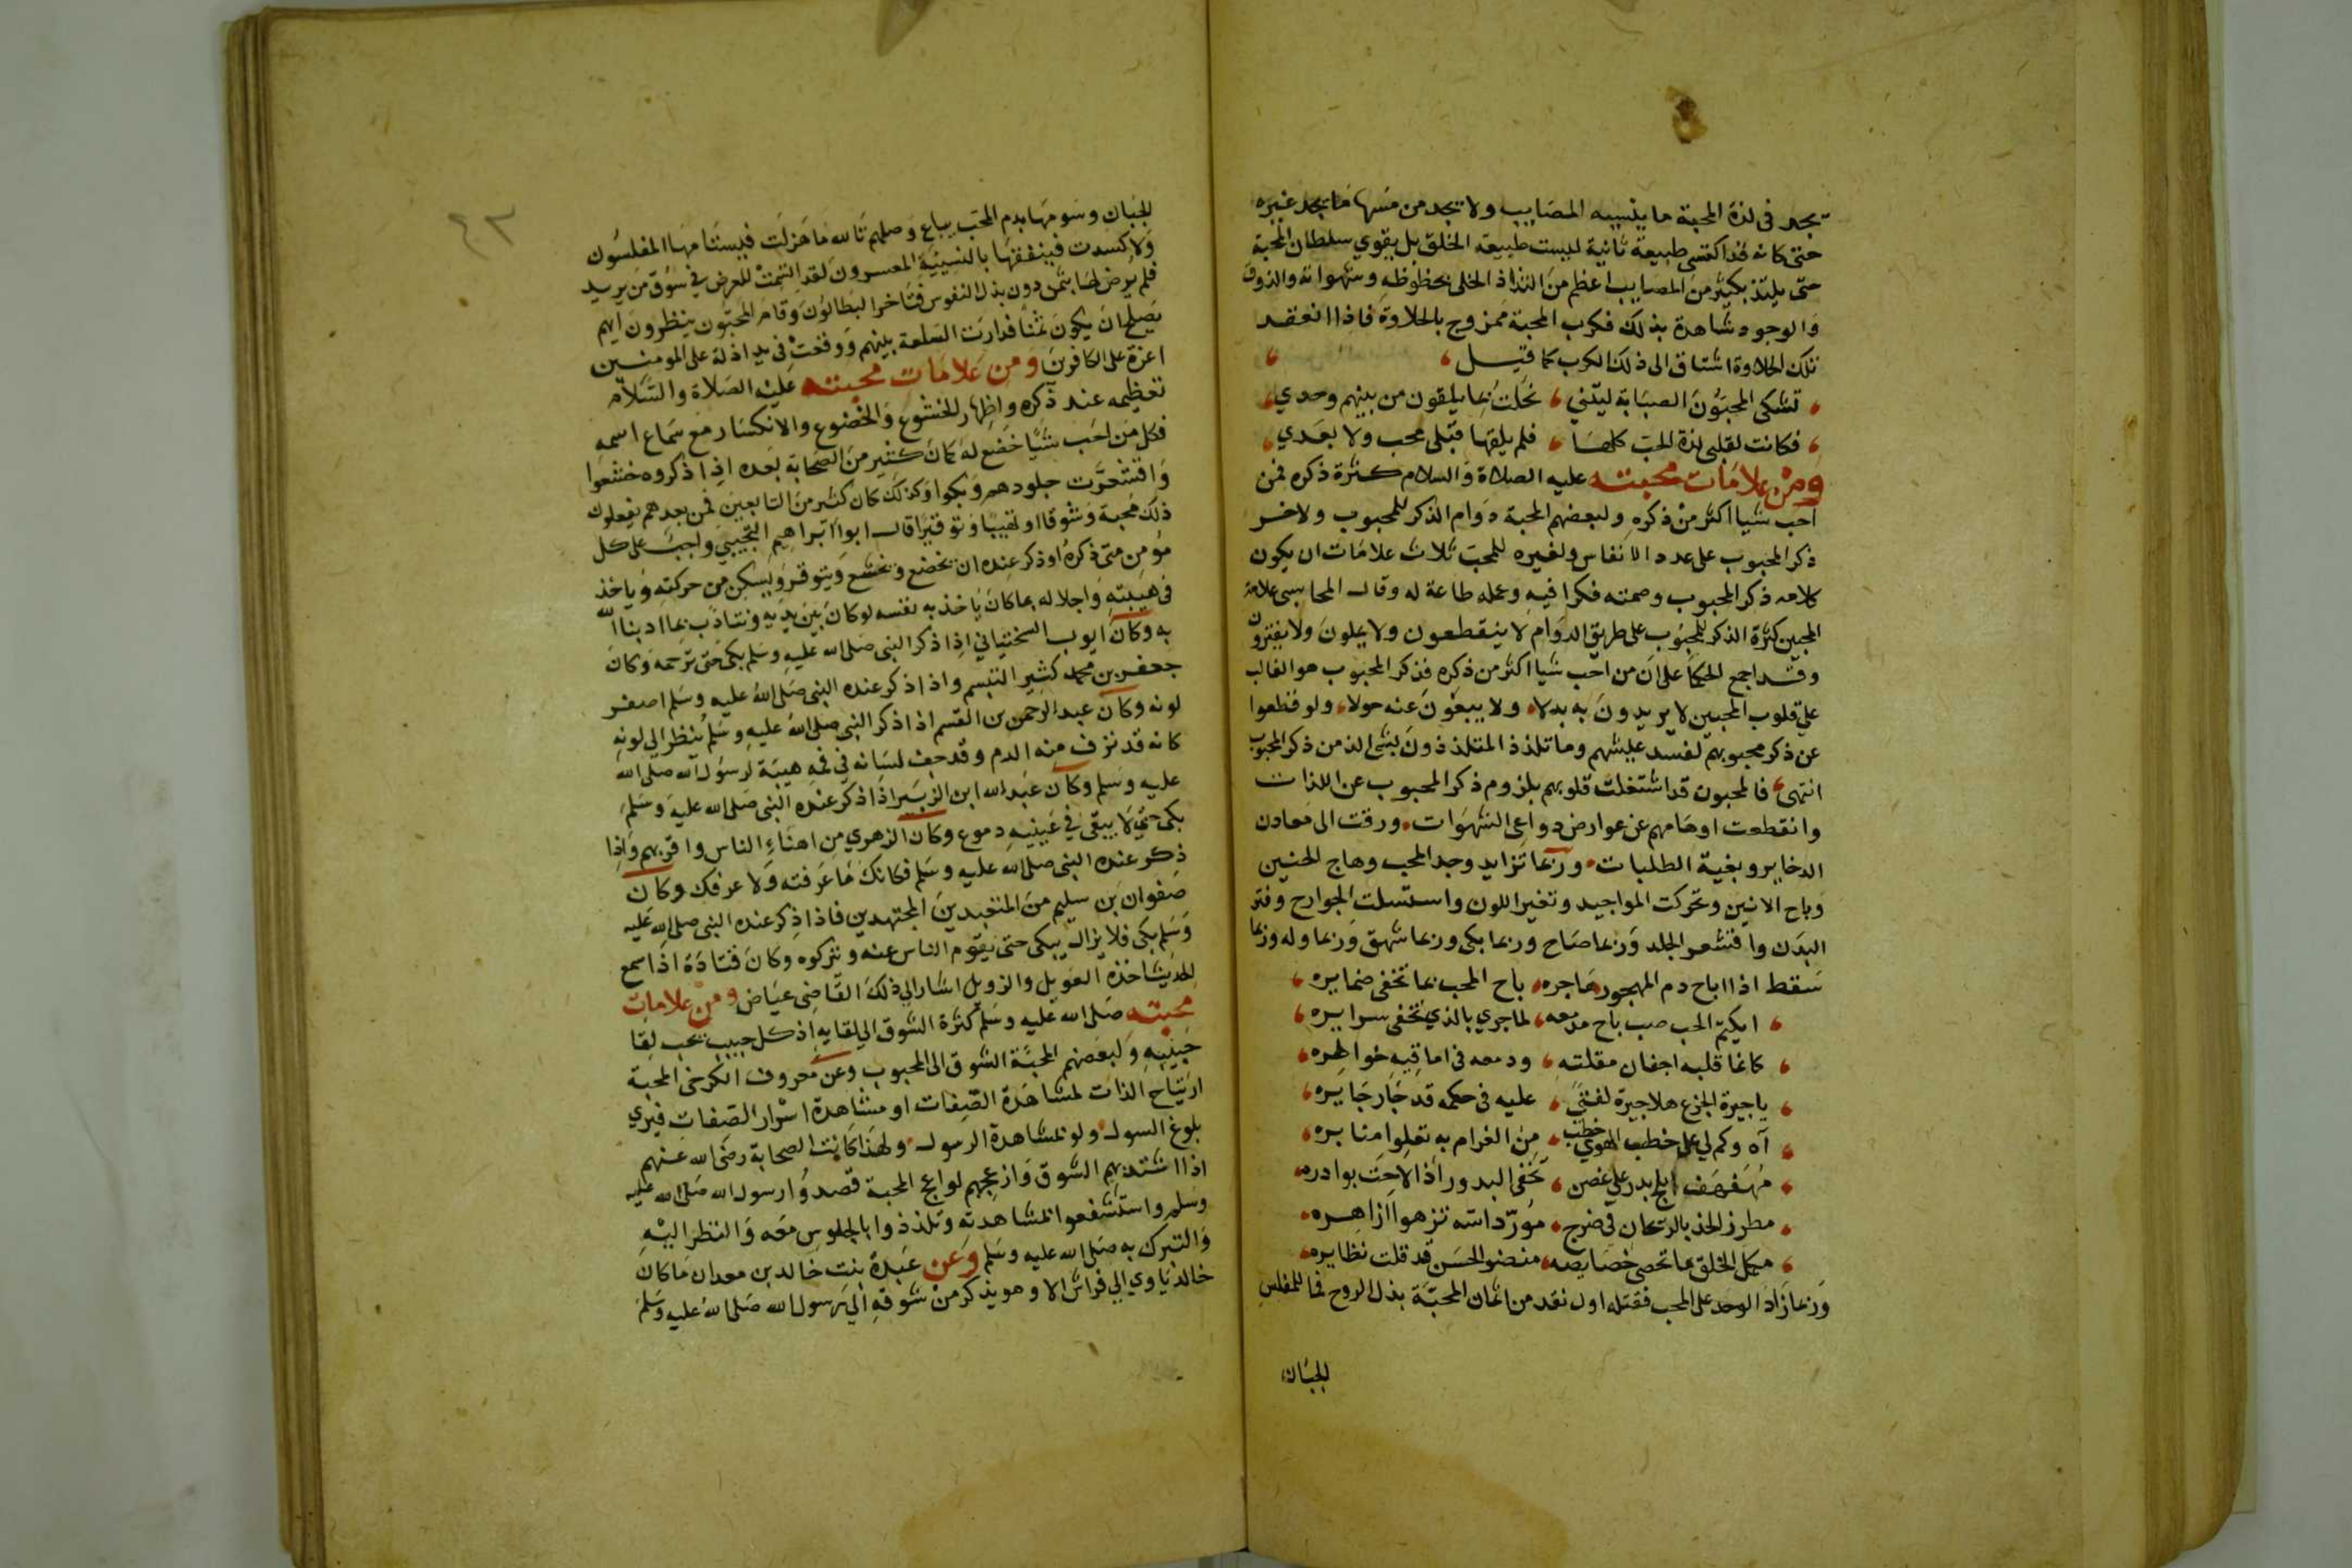 يجد فى لذة المحبة ما ينسيه المصايب ولا يجد من مسها ما يجد غيره
حتى كانه قد اكتسى طبيعة ثانية ليست طبيعة الخلق بل يقوي سلطان المحبة
حتى يلتذ بكثير من المصايب اعظم من التذاذ الخلى بحظوظه وشهواته والذوق
والوجود شاهدة بذلك فكرب المحبة ممزوج بالحلاوة فاذا انفقد
تلك الحلاوة اشتاق الى ذلك الكرب كما قيل
تشكى المحبون الصبابة ليتني نحلت بما يلقون من بينهم وحدي
فكانت لقلبى لذة الحب كلها فلم يلقها قبلى محب ولا بعدي
ومن علامات محبته عليه الصلاة والسلام كثرة ذكره فمن
احب شيا اكثر من ذكره ولبعضهم المحبة دوام الذكر للمحبوب ولاخر
ذكر المحبوب على عدد الانفاس ولغيره للمحب ثلاث علامات ان يكون
كلامه ذكر المحبوب وصمته فكرا فيه وعمله طاعة له وقال المحاسبى علامة
المحبين كثرة الذكر للمحبوب على طريق الدوام لا ينقطعون ولا يملون ولا يفترون
وقد اجمع الحكما على ان من احب شيا اكثر من ذكره فذكر المحبوب هو الغالب
على قلوب المحبين لا يريدون به بدلا ولا يبغون عنه حولا ولو قطعوا
عن ذكر محبوبهم لفسد عيشهم وما تلذذ المتلذذون بشى الذ من ذكر المحبوب
انتهى فالمحبون قد اشتغلت قلوبهم بلزوم ذكر المحبوب عن اللذات
وانقطعت اوهامهم عن عوارض دواعى الشهوات ورقت الى معادن
الدخاير وبغية الطلبات وربما تزايد وجد المحب وهاج الحنين
وباح الانين وتحركت المواجيد وتغير اللون واستسلت الجوارح وفتر
البدن واقشعر الجلد وربما صاح وربما بكى وربما شهق وربما وله وربما
سقط اذا اباح دم المهجور هاجره باح المحب بما تخفى ضمايره
ايكتم الحب صب باح مدمعه لما جري بالذي تخفى سرايره
كانما قلبه اجفان مقلته ودمعه فى اماقيه خواطره
ياجيرة الجزع هلا جيرة لفتى عليه فى حكمه قد جار جايره
آه وكم لي على خطب الهوي خطب من الغرام به تعلوا منابره
مهفهف ابلج بدر على غصن تخفى البدور اذا لاحت بوادره
مطرز الخد بالريحان فى ضرج مورد اسه تزهوا ازاهره
مكمل الخلق ما تحصى خصايصه منضر الحسن قد قلت نظايره
وربما زاد الوجد على المحب فقتله اول نقد من اثمان المحبة بذل الروح فما للمفلس
للجبان
٤٣
للجبان وسومها بدم المحب يباع وصلهم تالله ما هزلت فيستامها المفلسون
ولا كسدت فينفقها بالنسيئة المعسرون لقد اقيمت للعرض في سوق من يريد
فلم يرض لها بثمن دون بذل النفوس فتاخر البطالون وقام المحبون ينظرون ايهم
يصلح ان يكون ثمنا فدارت السلعة بينهم ووقعت فى يد اذلة على المومنين
اعزة على الكافرين ومن علامات محبته عليه الصلاة والسلام
تعظيمه عند ذكره واظهار الخشوع والخضوع والانكسار مع سماع اسمه
فكل من احب شيا خضع له كما كان كثير من الصحابة بعده اذا ذكروه خشعوا
واقشعرت جلودهم وبكوا وكذلك كان كثير من التابعين فمن بعدهم يفعلون
ذلك محبة وشوقا او تهيبا وتوقيرا قال ابوا ابراهيم التجيبي واجب على كل
مؤمن متى ذكره او ذكر عنده ان يخضع ويخشع ويتوقر ويسكن من حركته وياخذ
فى هيبته واجلاله بما كان ياخذ به نفسه لو كان بين يديه ويتادب بما ادبنا الله
به وكان ايوب السختياني اذا ذكر النبى صلى الله عليه وسلم بكى حتى نرحمه وكان
جعفر بن محمد كثير التبسم واذا ذكر عنده النبى صلى الله عليه وسلم اصفر
لونه وكان عبد الرحمن بن القسم اذا ذكر النبى صلى الله عليه وسلم ينظر الي لونه
كانه قد نزف منه الدم وقد جف لسانه في فمه هيبة لرسول الله صلى الله
عليه وسلم وكان عبد الله ابن الزبير اذا ذكر عنده النبى صلى الله عليه وسلم
بكى حتى لا يبقى في عينيه دموع وكان الزهري من اهناء الناس واقربهم واذا
ذكر عنده النبى صلى الله عليه وسلم فكانك ما عرفته ولا عرفك وكان
صفوان بن سليم من المتعبدين المجتهدين فاذا ذكر عنده النبى صلى الله عليه
وسلم بكى فلا يزال يبكى حتى يقوم الناس عنه ويتركوه وكان قتادة اذا سمع
الحديث اخذه العويل والزويل اشار الى ذلك القاضى عياض ومن علامات
محبته صلى الله عليه وسلم كثرة الشوق الي لقايه اذ كل حبيب يحب لقا
حبيبه ولبعضهم المحبة الشوق الى المحبوب وعن معروف الكرخى المحبة
ارتياح الذات لمشاهدة الصفات او مشاهدة اسرار الصفات فيري
بلوغ السول ولو بمشاهدة الرسول ولهذا كانت الصحابة رضى الله عنهم
اذا اشتد بهم الشوق وازعجهم لواعج المحبة قصدوا رسول الله صلى الله عليه
وسلم واستشفعوا بمشاهدته وتلذذوا بالجلوس معه والنظر اليه
والتبرك به صلى الله عليه وسلم وعن عبدة بنت خالد بن معدان ما كان
خالد ياوي الي فراش الا وهو يذكر من شوقه الي رسول الله صلى الله عليه وسلم